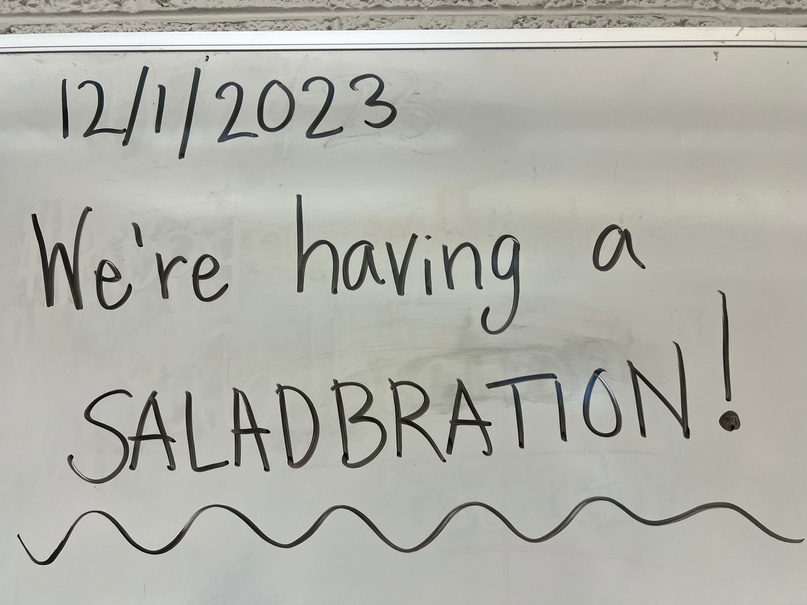 12/1/2023
We're having a
SALADBRATION!